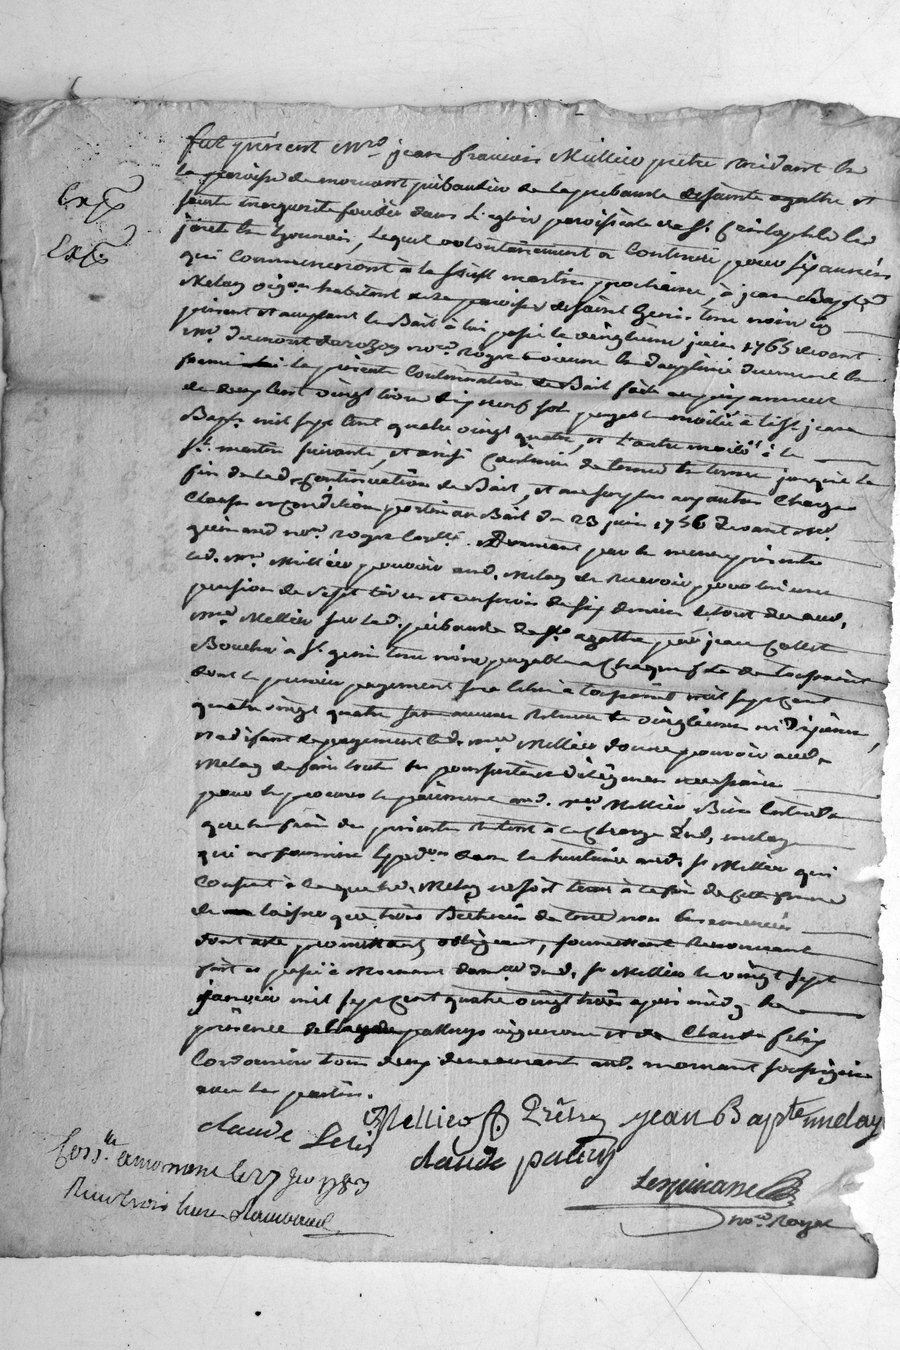 Exp.
Exp.
fut présent Mre jean francois Mellier prêtre résidant en
la paroisse de mornant prébandier de la prebande de sainte agathe et
sainte marguerite fondée dans L'eglise paroissiale de St. Cristophle la
jarets en Lyonnois, Lequel volontairement a Continué pour six années
qui Commenceront à la saint martin prochaine, à jean Bapte.
Melay habitant de la paroisse de saint Genis terre noire icy
présent et acceptant le Bail à lui passé le vingtieme juin 1765 devant
Mre. Dumont Darozon nore. royal
la présente Continuation de Bail faite au prix annuel
de deux Cent vingt livres dix neuf sols payable moitié à la st jean
Bapte. mil sept Cent quatre vingt quatre, et L'autre moitié à la
St. martin suivante, et ainsi Continuer de terme en terme jusqu'à la
fin de lad. Continuation de Bail, et au surplus aux autres Charges
Clauses et Conditions portées au Bail du 23 juin 1756 devant Mre.
guimard nore. royal par les mêmes présentes
led. Mre. Mellier pouvoir aud. Melay de Recevoir pour lui une
pension de sept livres six deniers le tout due aud.
Mre. Mellier sur lad. prébande de Ste. agathe par jean Collet
Boucher à St. genis terre noire payable a Chaque fête de toussaint
dont le premier payement sera à toussaint mil sept cent
quatre vingt quatre sans aucune retenue de vingtieme ni dixieme,
et à défaut de payement led. Mre. Mellier donne pouvoir aud.
Melay de faire toutes les poursuites et diligences necessaires
pour le procurer le paiement aud. Mre. Mellier, Bien Entendu
que les frais des présentes seront à la Charge dud. melay
qui en fournira Expedon. dans la huitaine aud. Sr Mellier qui
Consent à ce que led. Melay ne soit tenu à la fin de cette ferme
de laisser que trois Bicherées de terre non ensemencées
dont acte promettant obligeant, soumettant Renonceant
fait et passé à Mornant dud. Sr Mellier le vingt sept
janvier mil sept cent quatre vingt trois après midy en
présence de Claude pallüys vigneron et de Claude felix
Cordonnier tous deux demeurant aud. mornant soussignés
avec les parties.
Mellier Prêtre jean Bapte melay
claude Felix claude palluy
Lespinasse
nore. Royal
Conlle. a mornant le 27 jer 1783
Reçu trois livres